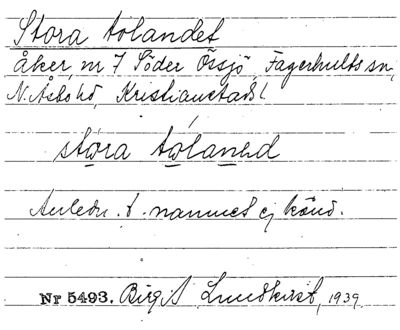 Stora tólandet
åker, nr 7 Söder Össjö, Fagerhults sn,
N. Åsbo hd, Kristianstads l.
stóra tólanəd
Anledn. t. namnet ej känd.
Nr 5493. Birgit Lundkvist, 1939